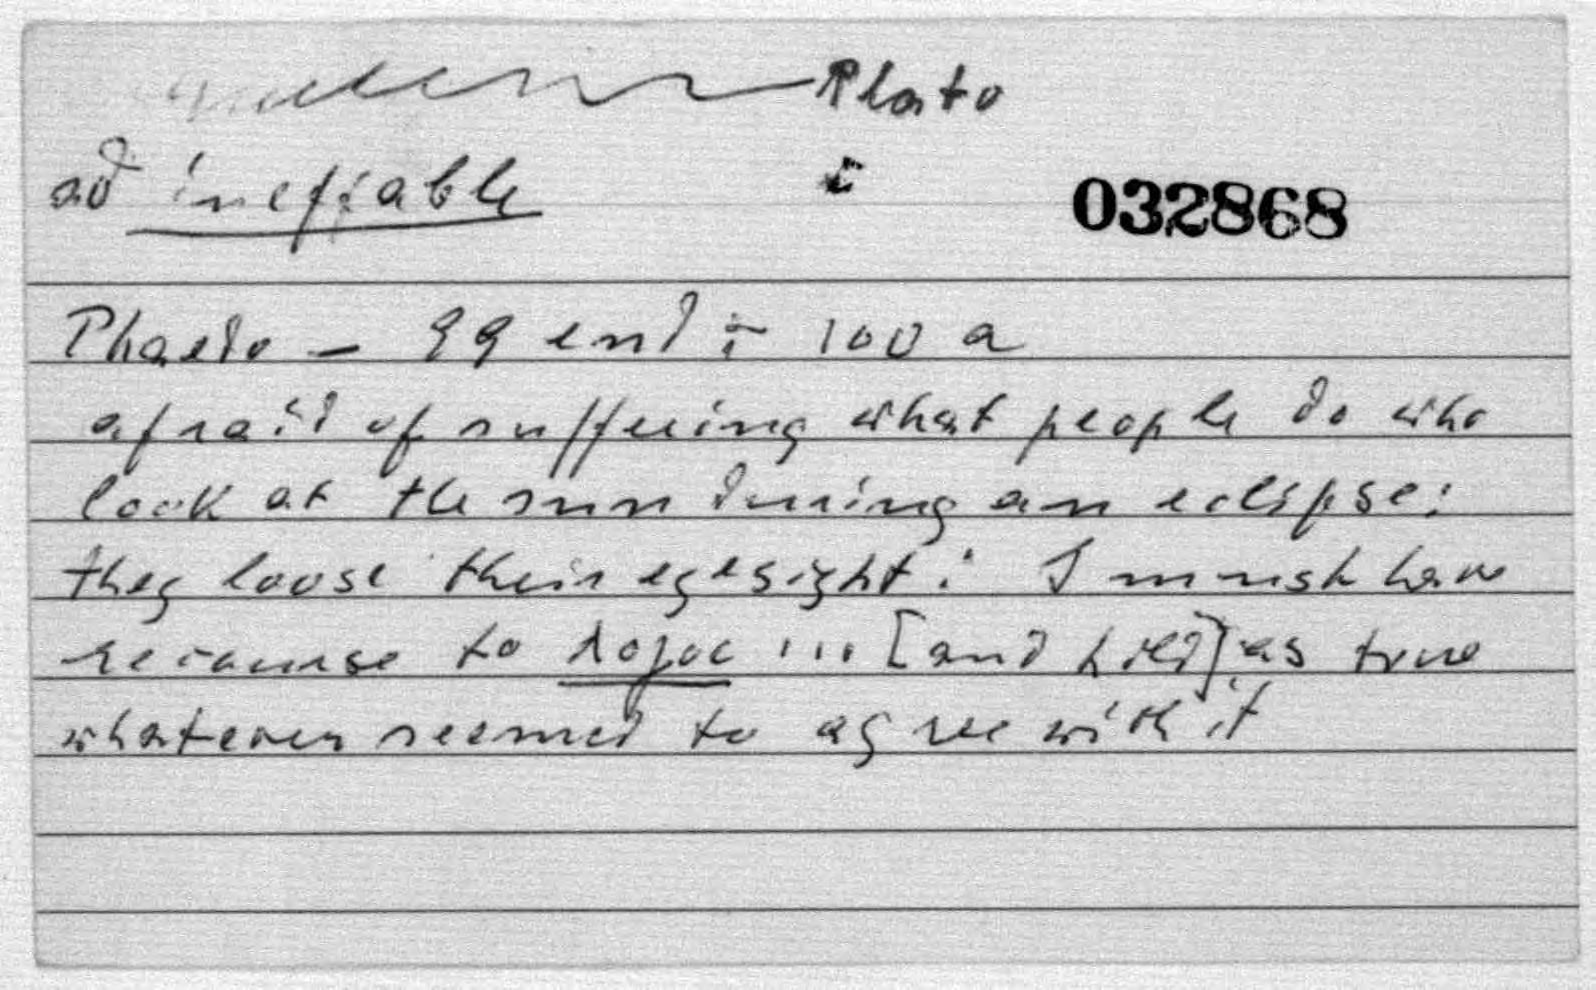 Plato
ad ineffable
032868
Phaedo – 99 end ÷ 100 a
afraid of suffering what people do who
look at the sun during an eclipse:
they loose their eyesight: I must have
recourse to λογος ... [and held] as true
whatever seemed to agree with it